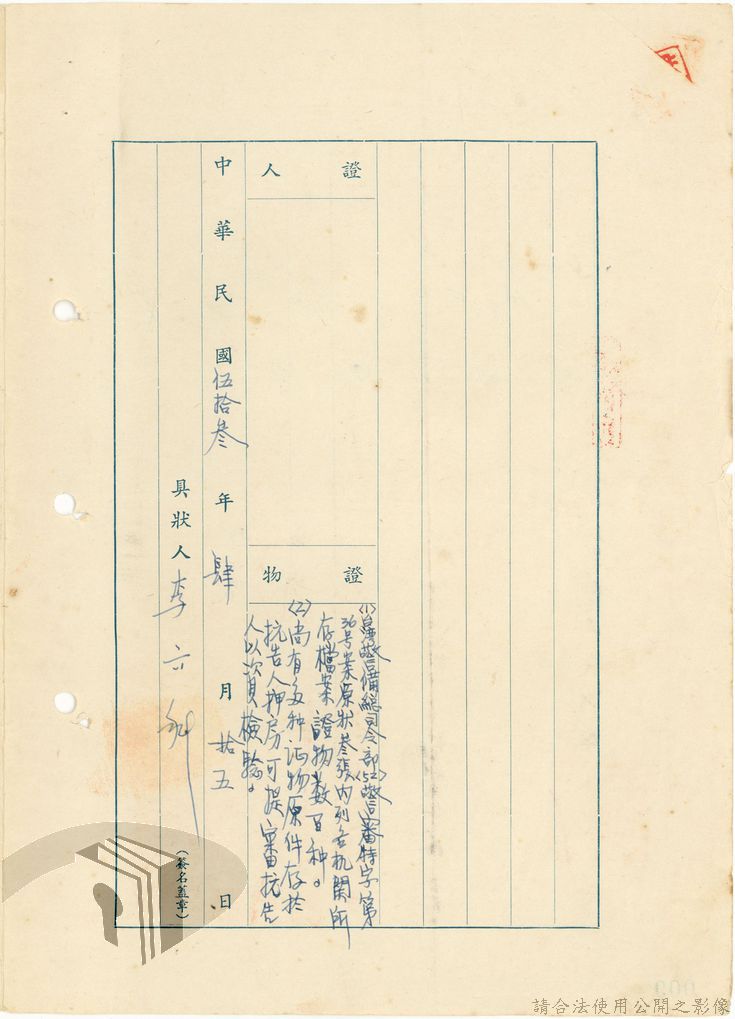 證人
證物
(1)臺警備總司令部(52)警審特字第
36号案原狀叁張內列各机関所
存檔案證物数百种。
(2)尚有多种証物原件存於
抗告人押房可提審抗告
人以次具檢驗。
中華民國伍拾叁年肆月拾五日
具狀人 李六
(簽名蓋章)
請合法使用公開之影像